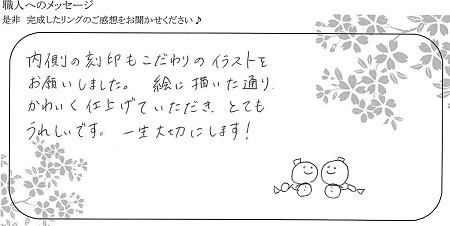 職人へのメッセージ
是非 完成したリングのご感想をお聞かせください♪
内側の刻印もこだわりのイラストを
お願いしました。 絵に描いた通り
かわいく仕上げていただき とても
うれしいです。 一生大切にします!